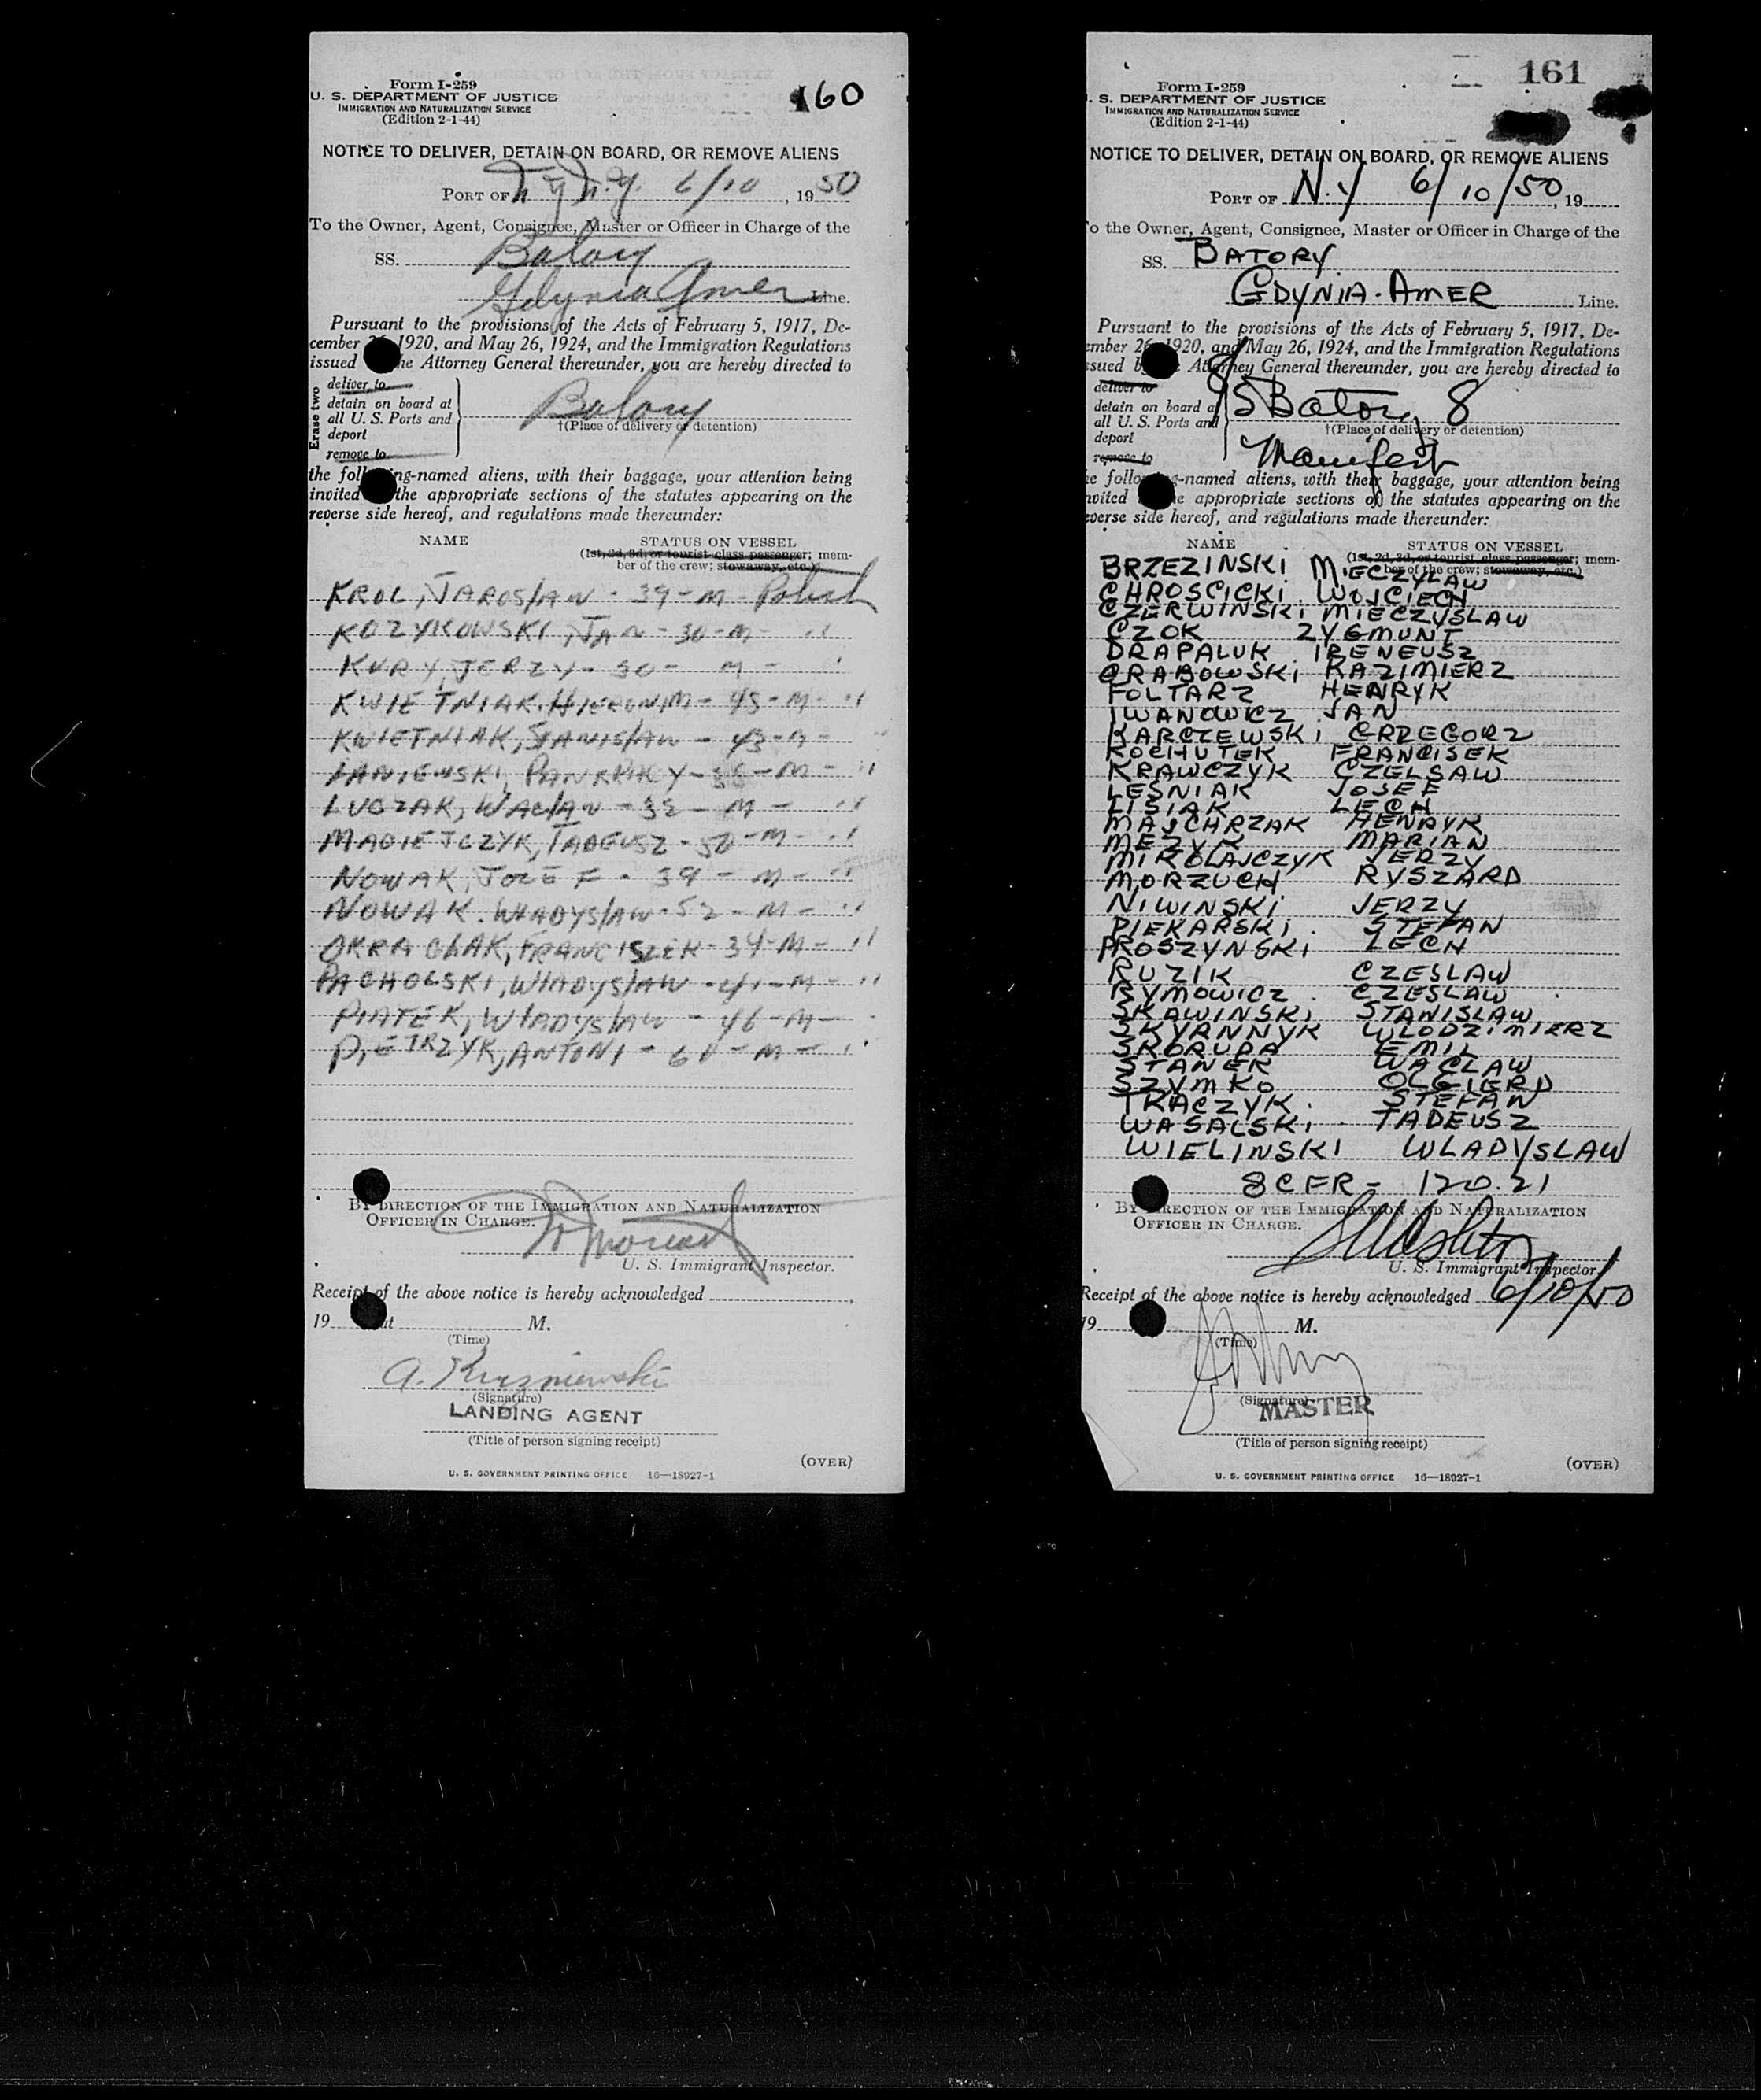 160
Form I-259
U. S. DEPARTMENT OF JUSTICE
IMMIGRATION AND NATURALIZATION SERVICE
(Edition 2-1-44)
NOTICE TO DELIVER, DETAIN ON BOARD, OR REMOVE ALIENS
PORT OF N.Y. N.Y. 6/10, 1950
To the Owner, Agent, Consignee, Master or Officer in Charge of the
SS. Batory
Gdynia Amer Line.
Pursuant to the provisions of the Acts of February 5, 1917, De-
cember 1920, and May 26, 1924, and the Immigration Regulations
issued the Attorney General thereunder, you are hereby directed to
Erase two
deliver to
detain on board at
all U. S. Ports and
deport
remove to
Batory
†(Place of delivery or detention)
the following-named aliens, with their baggage, your attention being
invited the appropriate sections of the statutes appearing on the
reverse side hereof, and regulations made thereunder:
NAME STATUS ON VESSEL
(1st, 2d, 3d, or tourist class passenger; mem-
ber of the crew; stowaway, etc.)
KROL, JAROSLAW - 39 - M - Polish
KOZYKOWSKI, JAN - 30 - M - "
KURY, JERZY - 30 - M - "
KWIETNIAK, HIERONIM - 45 - M - "
KWIETNIAK, STANISLAW - 43 - M - "
PANKRACY - M - "
LUCZAK, WACLAW - 32 - M - "
MACIEJCZYK, TADEUSZ - 50 - M - "
NOWAK, JOZEF - 39 - M - "
NOWAK, WLADYSLAW - 52 - M - "
OKRACLAK, FRANCISZEK - 34 - M - "
PACHOLSKI, WLADYSLAW - 41 - M - "
PIATEK, WLADYSLAW - 46 - M - "
PIETRZYK, ANTONI - M - "
BY DIRECTION OF THE IMMIGRATION AND NATURALIZATION
OFFICER IN CHARGE.
U. S. Immigrant Inspector.
Receipt of the above notice is hereby acknowledged ,
19 at M.
(Time)
A. Kuzniewski
(Signature)
LANDING AGENT
(Title of person signing receipt)
(OVER)
U. S. GOVERNMENT PRINTING OFFICE 16—18927-1
161
Form I-259
. S. DEPARTMENT OF JUSTICE
IMMIGRATION AND NATURALIZATION SERVICE
(Edition 2-1-44)
NOTICE TO DELIVER, DETAIN ON BOARD, OR REMOVE ALIENS
PORT OF N.Y 6/10/50, 19
To the Owner, Agent, Consignee, Master or Officer in Charge of the
SS. BATORY
GDYNIA-AMER Line.
Pursuant to the provisions of the Acts of February 5, 1917, De-
ember 26, 1920, and May 26, 1924, and the Immigration Regulations
ssued b Attorney General thereunder, you are hereby directed to
deliver to
detain on board at
all U. S. Ports and
deport
remove to
S/S Batory 8
†(Place of delivery or detention)
Manifest
e following-named aliens, with their baggage, your attention being
nvited e appropriate sections of the statutes appearing on the
everse side hereof, and regulations made thereunder:
NAME STATUS ON VESSEL
(1st, 2d, 3d, or tourist class passenger; mem-
ber of the crew; stowaway, etc.)
BRZEZINSKI MIECZYLAW
CHROSCICKI WOJCIECH
CZERWINSKI MIECZYSLAW
CZOK ZYGMUNT
DRAPALUK IRENEUSZ
GRABOWSKI KAZIMIERZ
FOLTARZ HENRYK
IWANOWICZ JAN
KARCZEWSKI GRZEGORZ
KOCHUTEK FRANCISEK
KRAWCZYK CZELSAW
LESNIAK JOSEF
LISIAK LECH
MAJCHRZAK HENRYK
MEZYK MARIAN
MIKOLAJCZYK JERZY
MORZUCH RYSZARD
NIWINSKI JERZY
PIEKARSKI STEFAN
PROSZYNSKI LECH
RUZIK CZESLAW
RYMOWICZ CZESLAW
SKAWINSKI STANISLAW
SKYRNNYK WLODZIMIERZ
SKORUPA EMIL
STANEK WACLAW
SZYMKO OLGIERD
TKACZYK STEFAN
WASALSKI TADEUSZ
WIELINSKI WLADYSLAW
8 CFR - 120.21
BY DIRECTION OF THE IMMIGRATION AND NATURALIZATION
OFFICER IN CHARGE.
U. S. Immigrant Inspector.
Receipt of the above notice is hereby acknowledged 6/10/50
19 M.
(Time)
(Signature)
MASTER
(Title of person signing receipt)
(OVER)
U. S. GOVERNMENT PRINTING OFFICE 16—18927-1